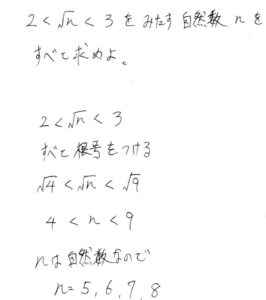 2 < √n < 3 をみたす 自然数 n を
すべて求めよ。
2 < √n < 3
すべて根号をつける
√4 < √n < √9
4 < n < 9
nは自然数なので
n = 5, 6, 7, 8